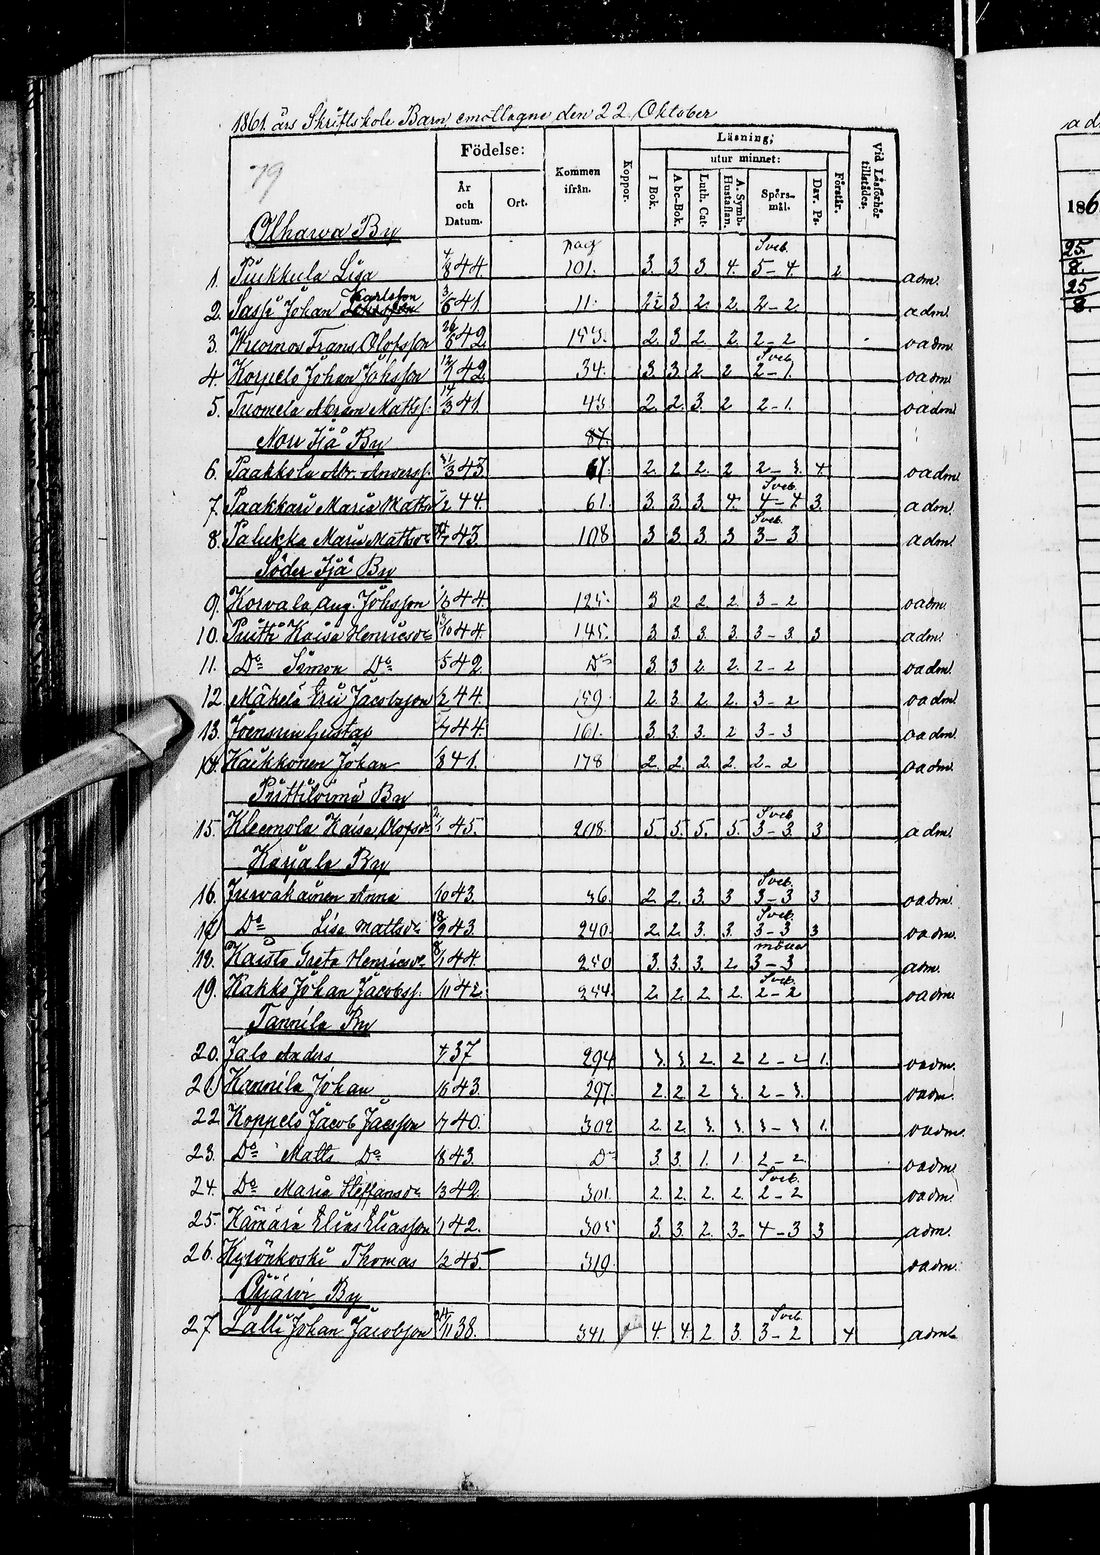 1861. års Skriftskole Barn, emottagne den 22 Oktober
79
Födelse: År och Datum. Ort. Kommen ifrån. Koppor. Läsning; I Bok. utur minnet: Abc-Bok. Luth. Cat. A. Symb. Hustaflan. Spörs-mål. Dav. Ps. Förstår. Vid Läsförhör tillstådes.
Olhawa By pag Sveb.
1. Puikkula Lisa 4/8 44. 101. 3. 3 3. 4. 5-4 2 adm.
2. Sassi Johan Karlsson 3/6 41. 11. 2 3 2. 2. 2-2 adm.
3. Wuornos Frans Olofsson 26/6 42 153. 2. 3 2. 2. 2-2 oadm.
Sveb.
4. Korpela Johan Johsson 12/7 42 34. 3. 3. 2. 2 2-1. oadm.
5. Tuomela Abram Matss. 14/3 41. 43 2. 2. 3. 2 2-1. oadm
Norr Ijå By 87.
6. Paakkola Abr. Anderss. 31/3 43. 67. 2. 2 2. 2 4. oadm.
Sveb.
7. Paakkari Maria Matsd /2 44. 61. 3. 3. 3. 4. 4-4. 3. adm.
Sveb.
8. Palukka Maria Mattsdr /7 43. 108 3 3 3. 3 3-3 adm.
Söder Ijå By
9. Korvala Aug. Johsson /6 44. 125. 3 2 2. 2. 3-2 oadm.
10. Pruitti Kaisa Henricsdr /10 44. 145. 3. 3. 3. 3. 3-3 3 adm.
11. Do Simon Do /5 42. Do 3. 3 2. 2. 2-2 oadm.
12. Mäkelä Eric Jacobsson /2 44. 159. 2. 3. 2. 2. 3-2 oadm.
13. Joensuu Gustaf /7 44. 161. 3. 3. 3. 2 3-3 oadm.
14. Kaikkonen Johan /8 41. 178 2. 2. 2. 2. 2-2 oadm.
By
Sveb.
15. Kleemola Kaisa Olofsdr 2/1 45. 208. 5. 5. 5. 5. 3-3 3 adm.
Karjala By
Sveb.
16. Jurvakainen Anna /10 43. 36. 2. 2 3. 3 3-3 3 oadm.
Sveb.
17. Do Lisa Mattsdr 18/9 43. 240. 2. 2. 3. 3. 3-3 3 oadm.
18. Kaisto Greta Henricsdr 8/1 44. 250 3. 3. 3. 2 3-3 adm.
Sveb.
19. Kakko Johan Jacobss. /11 42. 254. 2. 2. 2. 2. 2-2 oadm.
Tannila By
20. Jalo Anders 4/ 37 294. 2. 2 2-2 1. oadm.
21. Hannila Johan /6 43. 297. 2. 2 2 oadm.
22. Koppelo Jacob Jacsson /7 40. 302 2. 2. 1. oadm.
23. Do Matts Do /8 43. Do 3. 3. 1. 1. 2-2. oadm.
Sveb.
24. Do Maria Steffansdr /3 42. 301. 2. 2. 2. 2. 2-2 oadm.
25. Hämärä Elias Eliasson /1 42. 305 3. 3. 2. 3. 4-3 3 adm.
26. Kyrönkoski Thomas /2 45. 319. oadm.
Oijärvi By
Sveb.
27 Lalli Johan Jacobsson 24/11 38. 341. 4. 4. 2 3. 3-2 4 adm.
186
25.
8.
25
8.